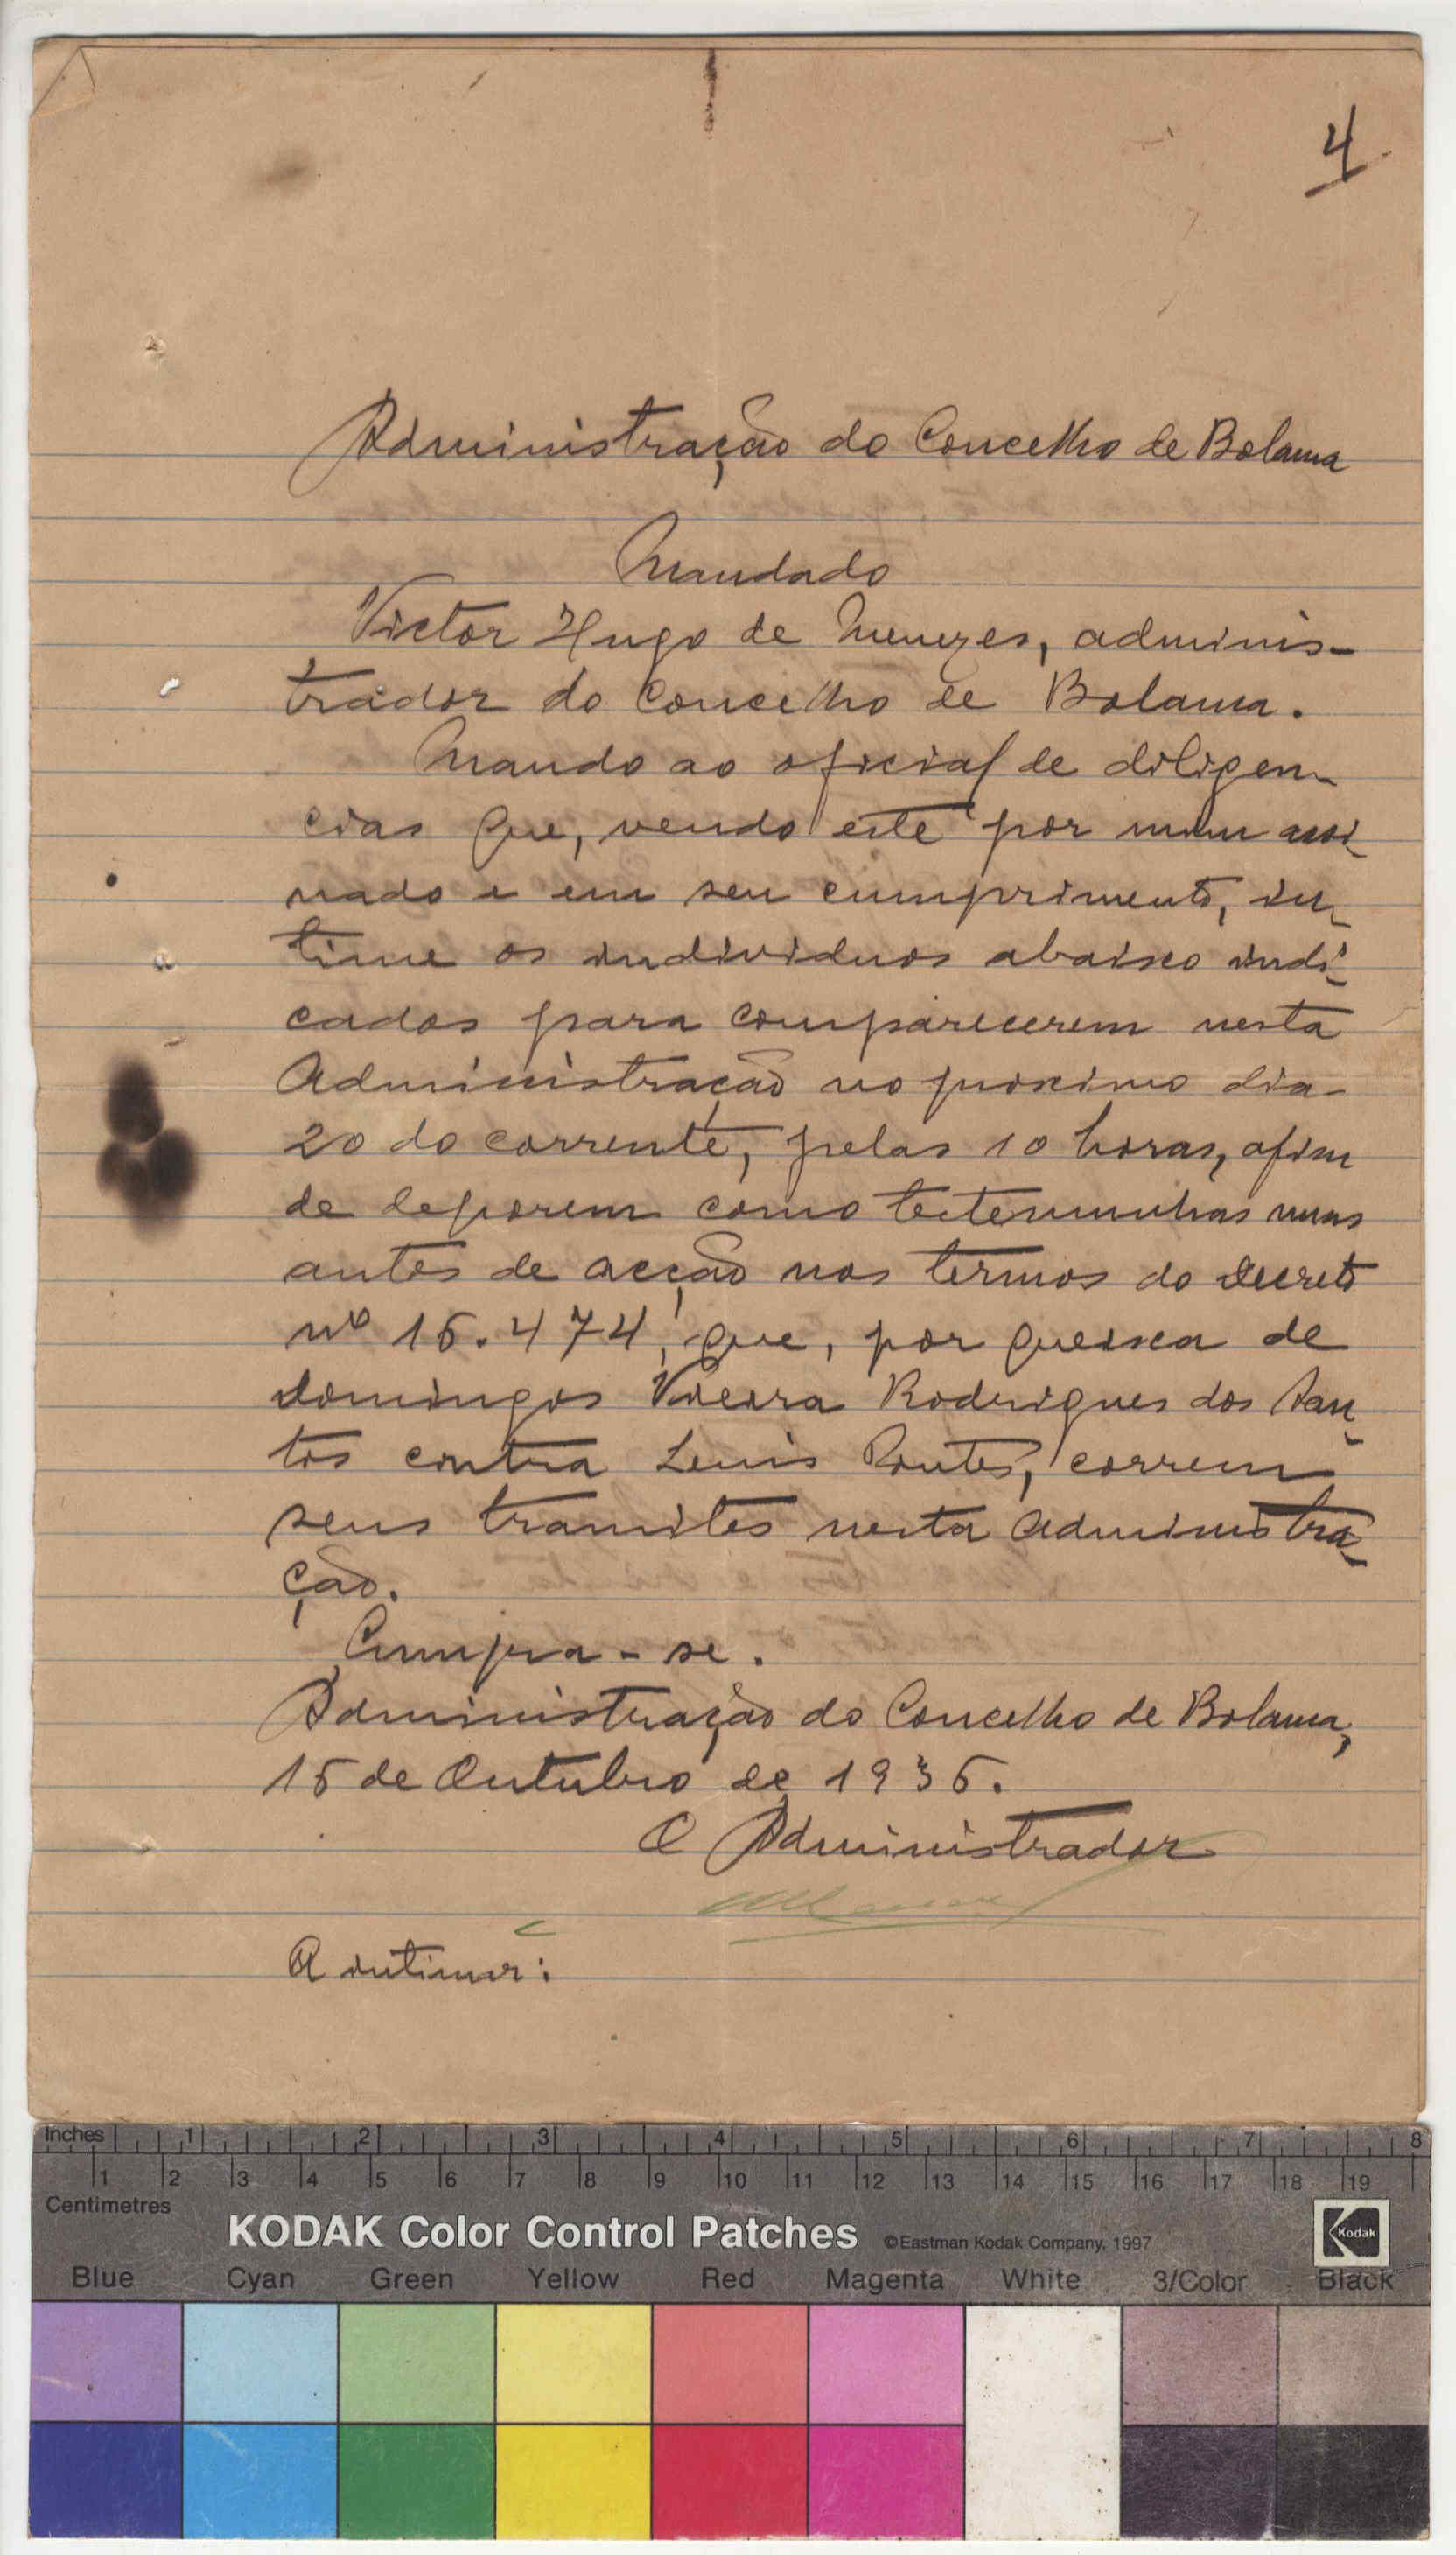 4
Administração do Concelho de Bolama
Mandado
Victor Hugo de Menezes, adminis-
trador do Concelho de Bolama.
Mando ao oficial de diligen-
cias que, vendo este por mim assi-
nado e em seu cumprimento, in-
time os individuos abaixo indi-
cados para comparecerem nesta
Administração no proximo dia
20 do corrente, pelas 10 horas, afim
de deporem como testemunhas nuns
autos de acção nos termos do decreto
nº 16.474, que, por queixa de
Domingos Vieira Rodrigues dos San-
tos contra Luis Pontes, correm
seus tramites nesta Administra-
ção.
Cumpra-se.
Administração do Concelho de Bolama,
15 de Outubro de 1936.
O Administrador
A intimar:
Inches 1 2 3 4 5 6 7 8
1 2 3 4 5 6 7 8 9 10 11 12 13 14 15 16 17 18 19
Centimetres
KODAK Color Control Patches ©Eastman Kodak Company, 1997 Kodak
Blue Cyan Green Yellow Red Magenta White 3/Color Black